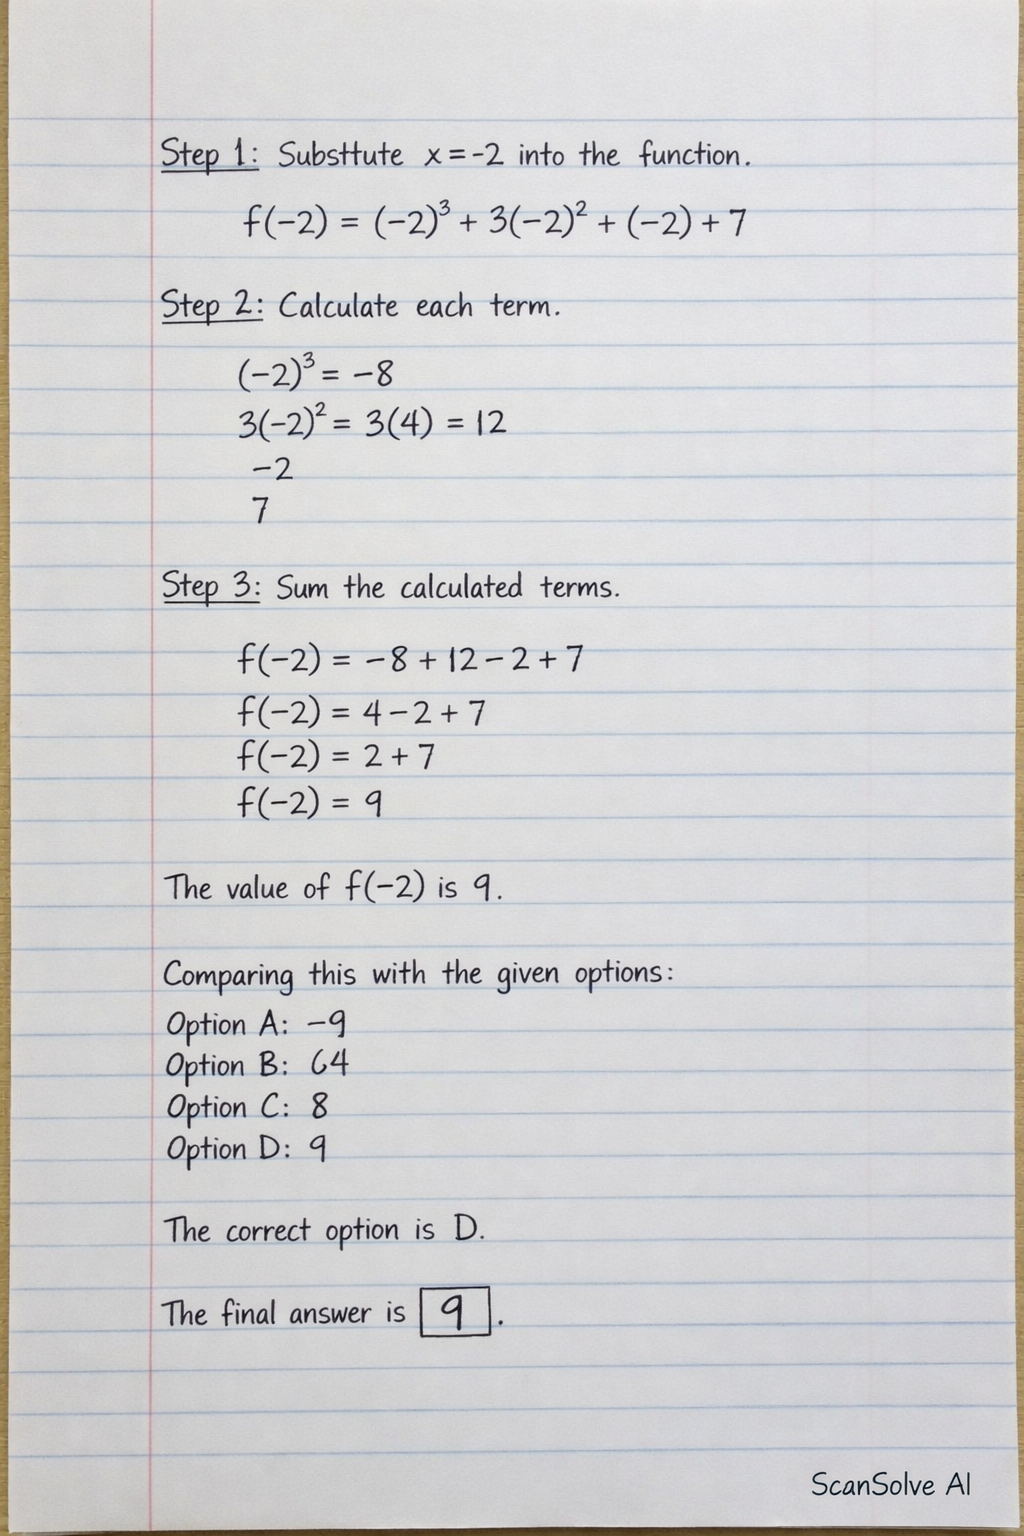 Step 1: Substtute x = -2 into the function.
f(-2) = (-2)³ + 3(-2)² + (-2) + 7
Step 2: Calculate each term.
(-2)³ = -8
3(-2)² = 3(4) = 12
-2
7
Step 3: Sum the calculated terms.
f(-2) = -8 + 12 - 2 + 7
f(-2) = 4 - 2 + 7
f(-2) = 2 + 7
f(-2) = 9
The value of f(-2) is 9.
Comparing this with the given options:
Option A: -9
Option B: 64
Option C: 8
Option D: 9
The correct option is D.
The final answer is 9.
ScanSolve AI